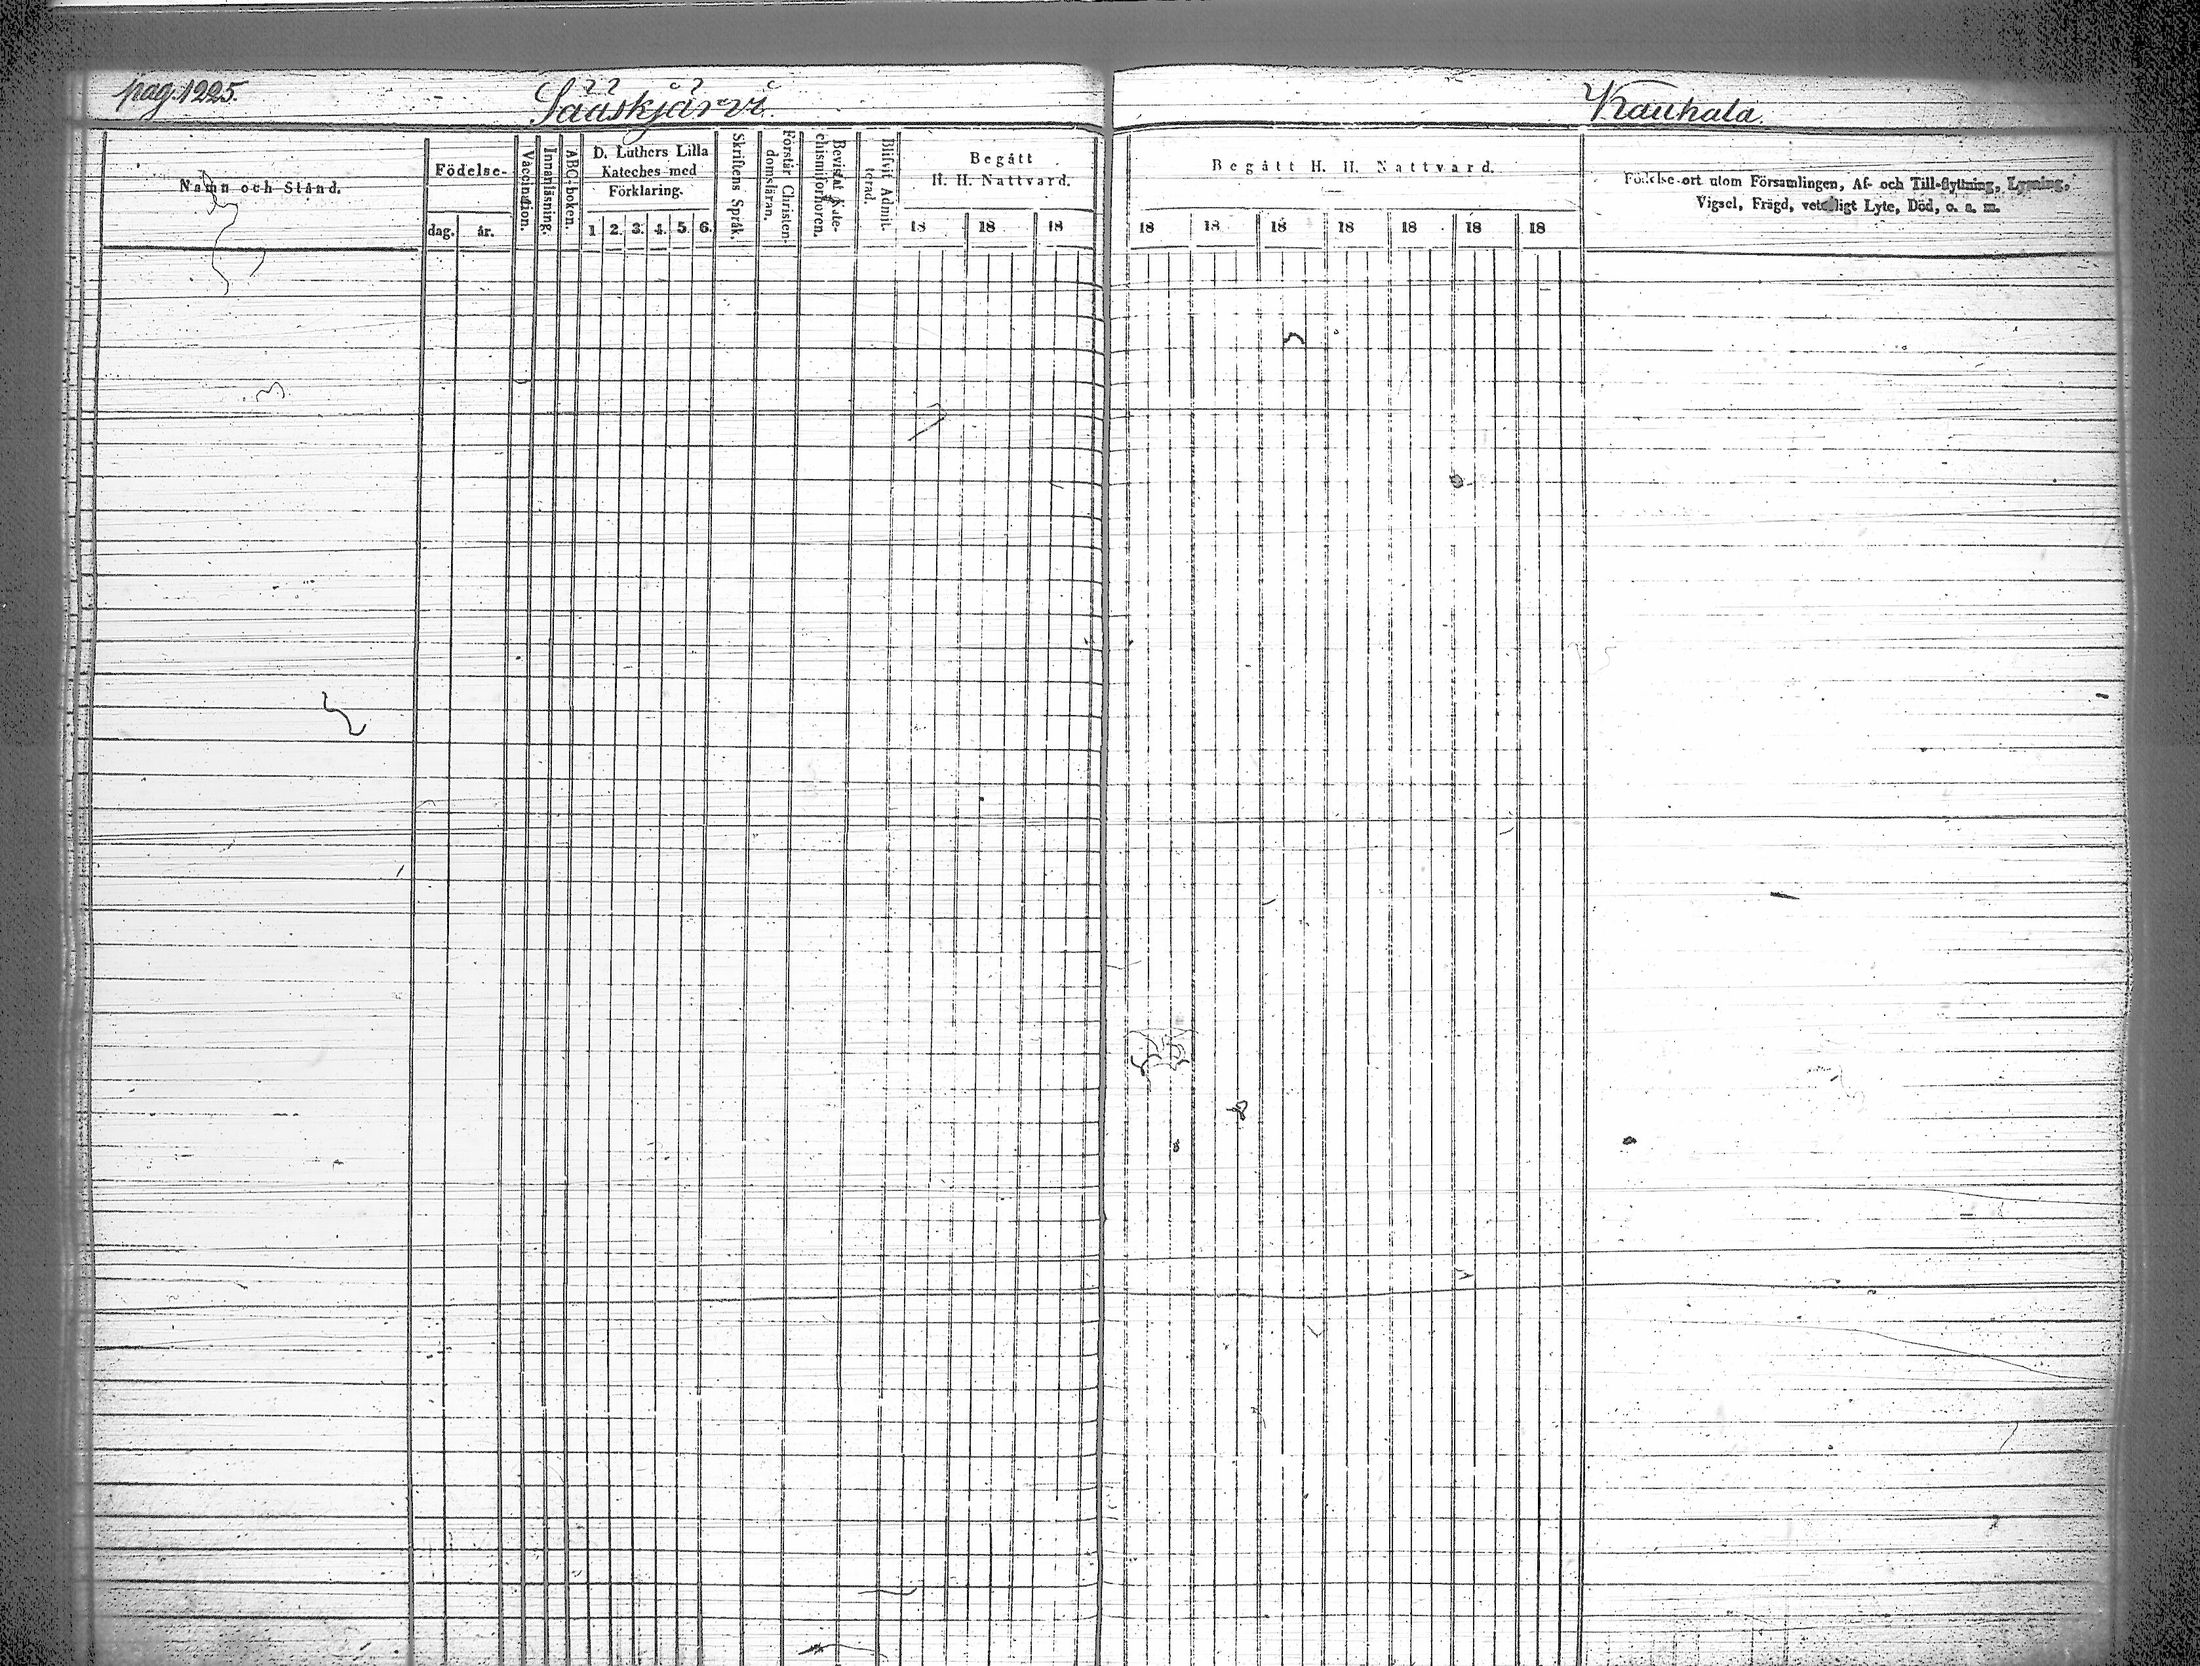 pag. 1225.
Sääskjärvi.
Kauhala.
Namn och Stånd.
Födelse-
dag.
år.
Vaccination.
Innanläsning.
ABC-boken.
D. Luthers Lilla
Kateches med
Förklaring.
1 2. 3. 4. 5. 6.
Skriftens Språk.
Förstår Christen-
domsläran.
Bevistat Kate-
chismiförhören.
Blifvit Admit-
terad.
Begått
H. H. Nattvard.
18 18 18
Begått H. H. Nattvard.
18 18 18 18 18 18 18
Födelse-ort utom Församlingen, Af- och Till-flyttning, Lysning,
Vigsel, Frägd, veterligt Lyte, Död, o. s. m.